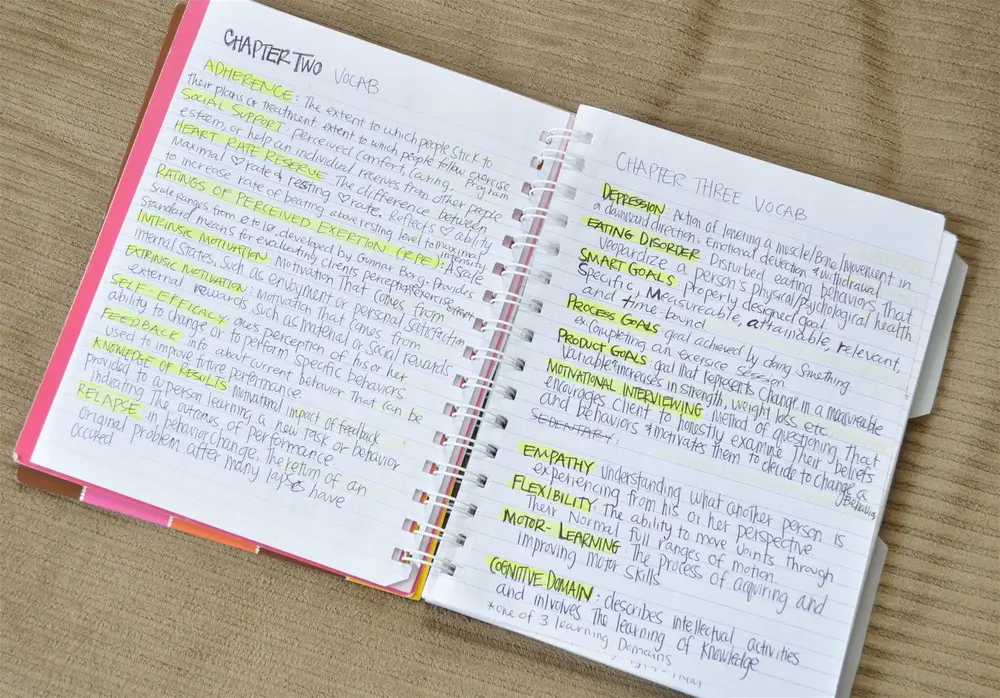 CHAPTER TWO VOCAB
ADHERENCE: The extent to which people stick to
their plans or treatment. extent to which people follow exercise
program
SOCIAL SUPPORT: perceived comfort, caring,
esteem, or help an individual receives from other people
HEART RATE RESERVE: The difference between
maximal ♡ rate & resting ♡ rate. Reflects ♡ ability
to increase rate of beating above resting level to maximal
intensity
RATINGS OF PERCEIVED EXERTION (RPE): A scale
scale ranges from 6 to 18 developed by Gunnar Borg. Provides
standard means for evaluating clients perception
INTRINSIC MOTIVATION: Motivation That comes from
internal states, such as enjoyment or personal satisfaction
EXTRINSIC MOTIVATION: Motivation that comes from
external rewards, such as material or social rewards
SELF-EFFICACY: one's perception of his or her
ability to change or to perform specific behaviors.
FEEDBACK: info about current behavior That can be
used to improve future performance.
KNOWLEDGE OF RESULTS: Motivational impact of feedback
provided to a person learning a new task or behavior
indicating The outcomes of performance.
RELAPSE: in behavior change, The return of an
original problem after many lapses have
occured
CHAPTER THREE VOCAB
DEPRESSION: Action of lowering a muscle/Bone/Movement in
a downward direction. Emotional dejection & withdrawal
EATING DISORDER: Disturbed eating behaviors, That
jeopardize a person's physical/psychological health
SMART GOALS: properly designed goal.
Specific, Measureable, attainable, relevent,
and time-bound
PROCESS GOALS: goal achieved by doing something
ex: completing an exercise session
PRODUCT GOALS: goal that represents change in a measureable
variable: increases in strength, weight loss etc.
MOTIVATIONAL INTERVIEWING: method of questioning That
encourages client to honestly examine Their beliefs
and behaviors & motivates them to decide to change a
Behavior
SEDENTARY:
EMPATHY: understanding what another person is
experiencing from his or her perspective
FLEXIBILITY: The ability to move joints through
Their Normal full ranges of motion.
MOTOR-LEARNING: The process of acquiring and
improving motor skills
COGNITIVE DOMAIN: describes intellectual activities
and involves The learning of knowledge.
*one of 3 learning Domains